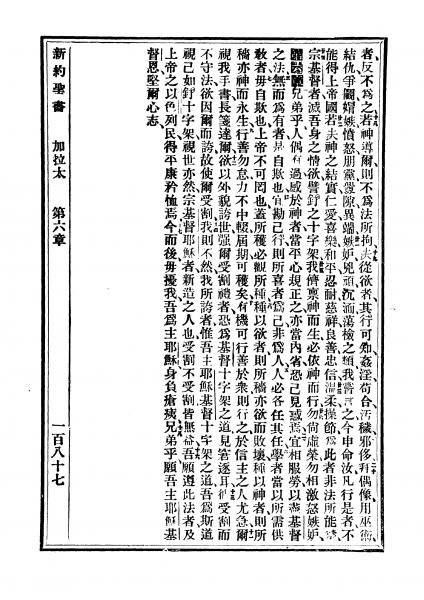 者反不爲之若神導爾則不爲法所拘夫從欲者其行可知姦淫苟合汚穢邪侈拜偶像用巫術
結仇爭鬬媢嫉憤怒朋黨釁隙異端嫉妒兇頑沉湎蕩檢之類我嘗言之今申命汝凡行是者不
能得上帝國若夫神之結實仁愛喜樂和平忍耐慈祥良善忠信温柔操節爲此者非法所能禁
宗基督者滅吾身之情欲釘之十字架我儕稟神而生必依神而行勿尚虛榮勿相激怒嫉妒
第六章兄弟乎人偶有過感於神者當平心規正之亦當內省恐己見惑焉宜相服勞以盡基督
之法無而爲有者是自欺也宜勘己行則所喜者爲己非爲人人必各任其任學者當以所需供
敎者毋自欺也上帝不可罔也蓋所穫必觀所種種以欲者則所穡亦欲而敗壞種以神者則所
穡亦神而永生行善勿怠力不中輟屆期可穫矣有機可行善於衆則行之於信主之人尤急爾
視我手書長箋達爾欲以外貌誇世強爾受割禮者恐爲基督十字架之道見窘逐耳彼受割而
不守法欲因爾而誇故使爾受割我則不然我所誇者惟吾主耶穌基督十字架之道吾爲斯道
視己如釘十字架視世亦然宗基督耶穌者新造之人也受割不受割皆無益吾願遵此法者及
上帝之以色列民得平康矜恤焉今而後毋擾我吾爲主耶穌身負瘡痍兄弟乎願吾主耶穌基
督恩堅爾心志
新約聖書 加拉太 第六章 一百八十七